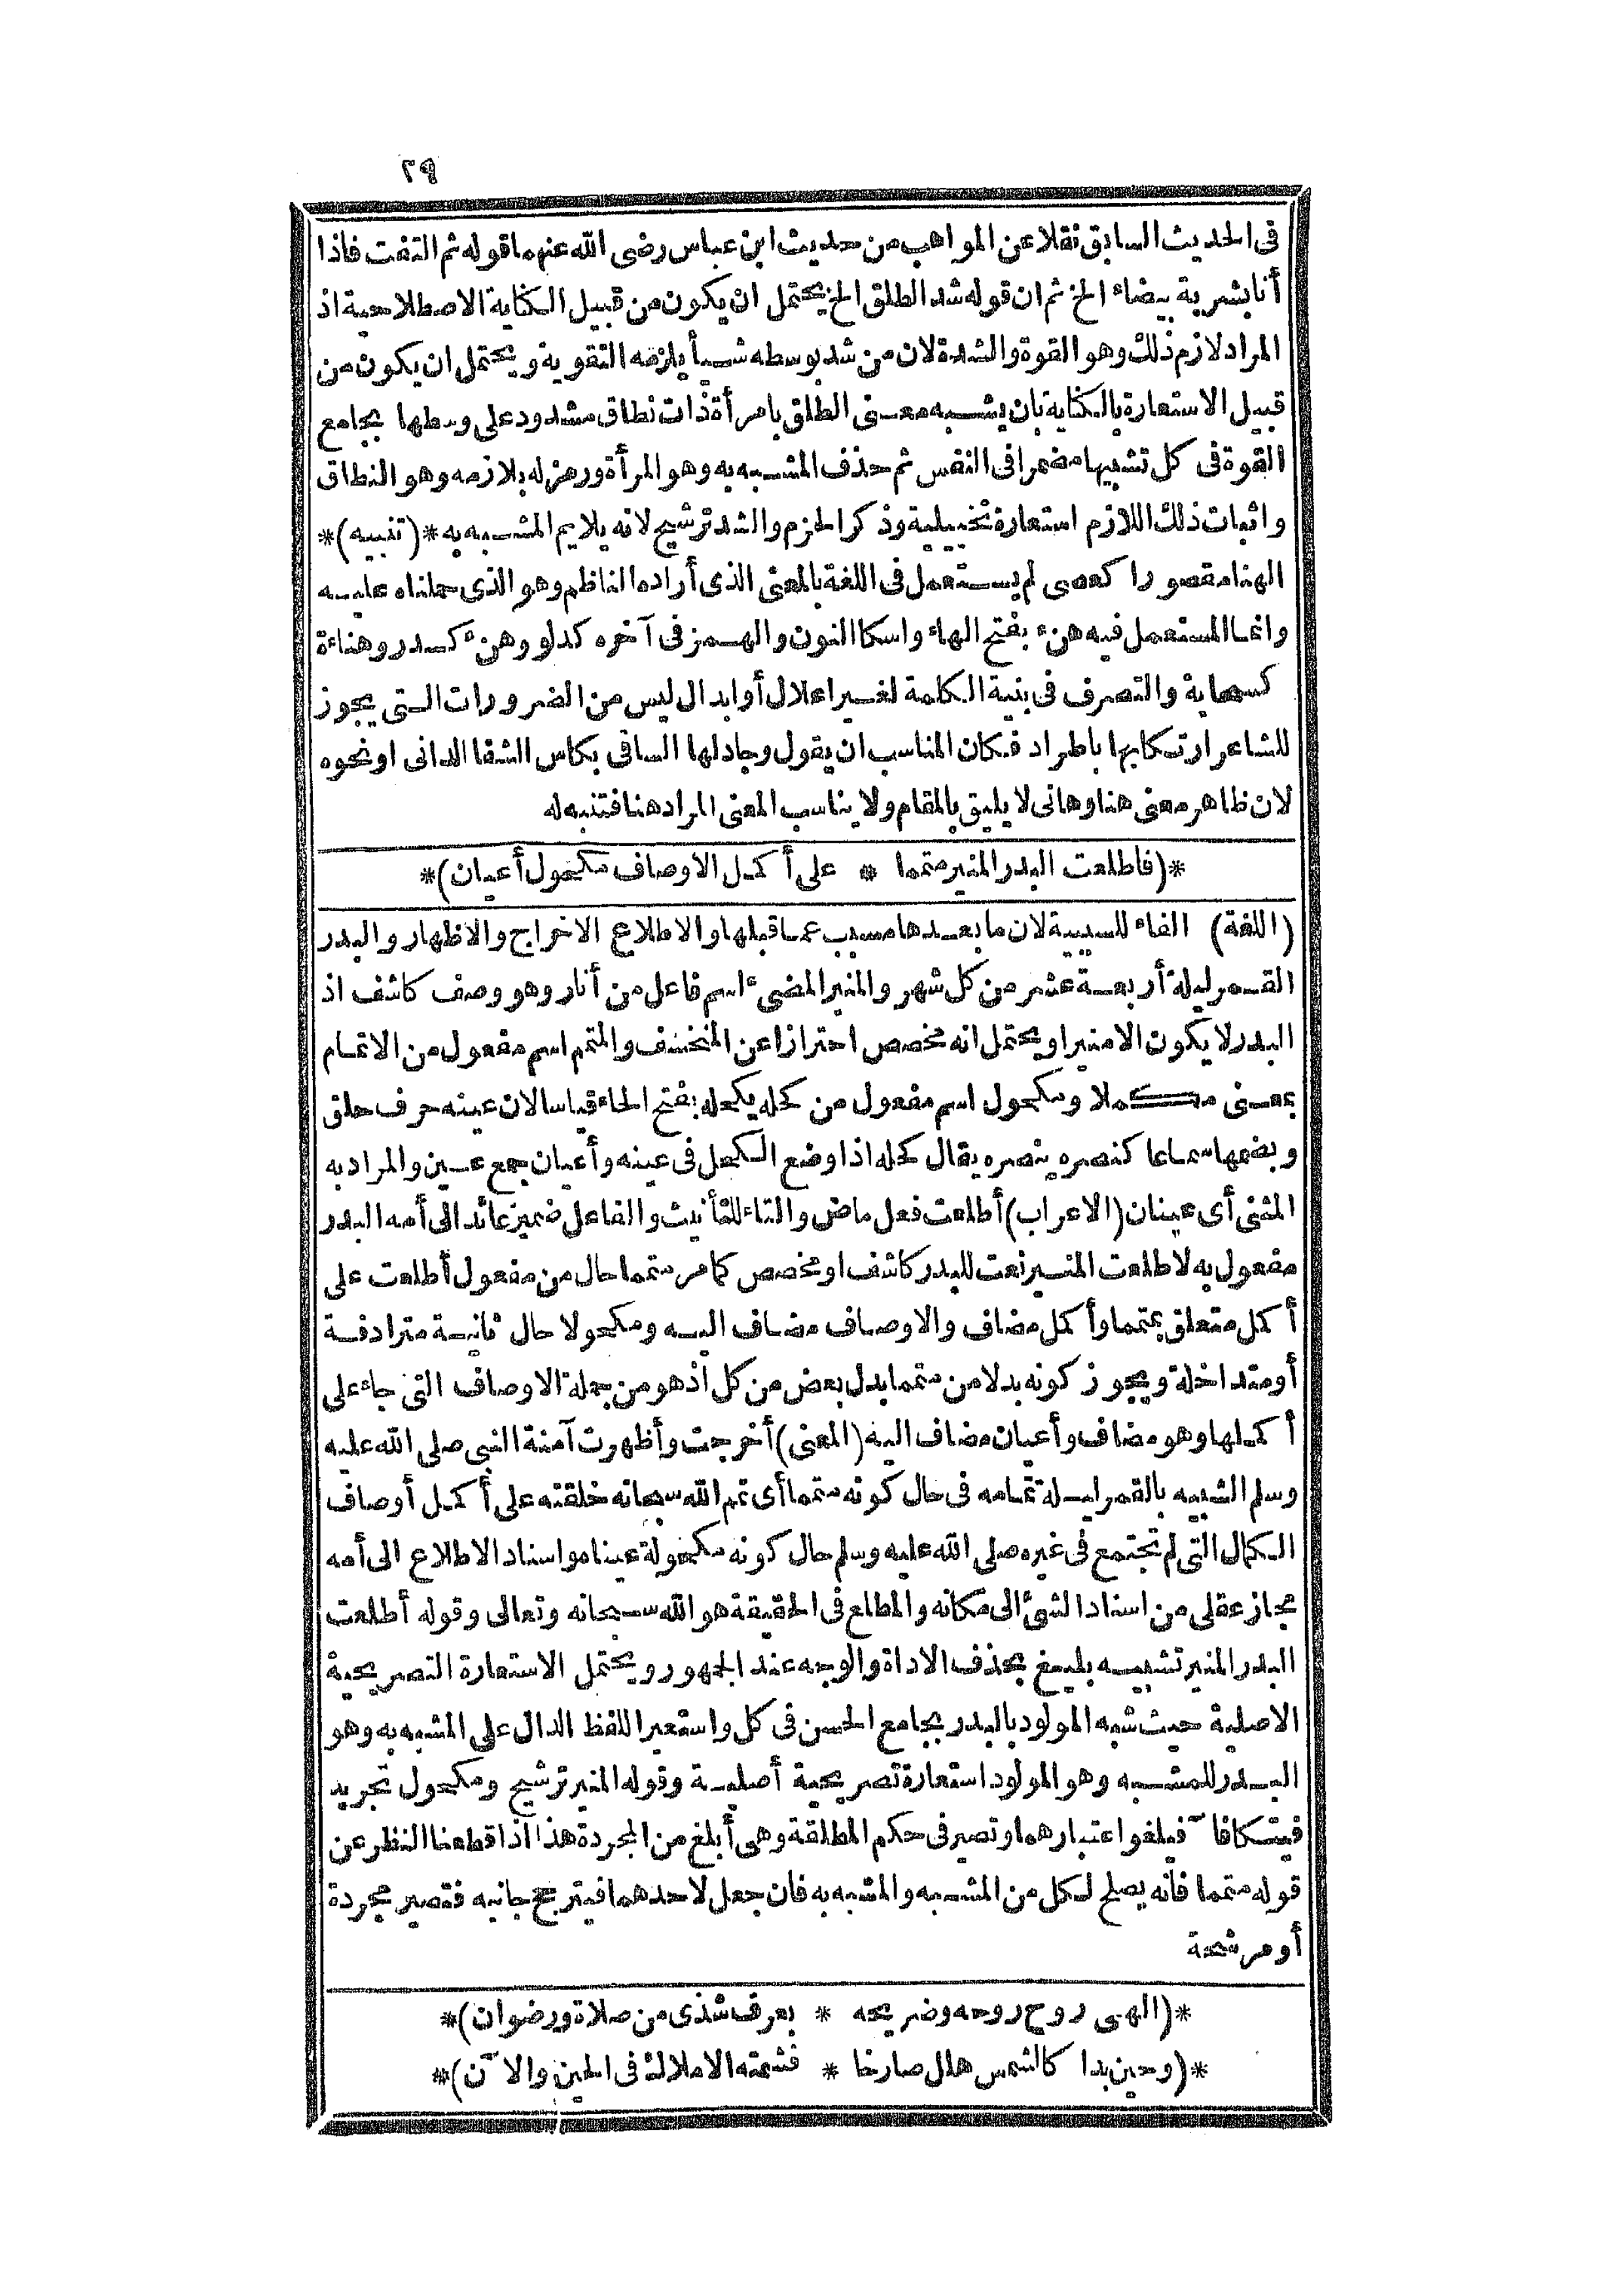 ٢٩
فى الحديث السابق نقلا عن المواهب من حديث ابن عباس رضى الله عنهما قوله ثم التفت فاذا
أنا بشربة بيضاء الخ ثم ان قوله شد الطلق الخ يحتمل ان يكون من قبيل الكناية الاصطلاحية اذ
المراد لازم ذلك وهو القوة والشدة لان من شد بوسطه شيأ يلزمه التقوية ويحتمل ان يكون من
قبيل الاستعارة بالكناية بان يشبه معنى الطلق بامرأة ذات نطاق مشدود على وسطها بجامع
القوة فى كل تشبيها مضمرا فى النفس ثم حذف المشبه به وهو المرأة ورمز له بلازمه وهو النطاق
واثبات ذلك اللازم استعارة تخييلية وذكر الحزم والشد ترشيح لانه يلايم المشبه به *(تنبيه)*
الهنا مقصورا كعصى لم يستعمل فى اللغة بالمعنى الذى أراده الناظم وهو الذى حملناه عليه
وانما المستعمل فيه هنء بفتح الهاء واسكا النون والهمز فى آخره كدلو وهنء كبدر وهناءة
كسحابة والتصرف فى بنية الكلمة لغير اعلال أو ابدال ليس من الضرورات التى يجوز
للشاعر ارتكابها باطراد فكان المناسب ان يقول وجاد لها الساقى بكاس الشفا الدانى او نحوه
لان ظاهر معنى هنا وهانى لا يليق بالمقام ولا يناسب المعنى المراد هنا فتنبه له
*(فاطلعت البدر المنير متمما * على أكمل الاوصاف مكحول أعيان)*
(اللغة) الفاء للسببية لان ما بعدها مسبب عما قبلها والاطلاع الاخراج والاظهار والبدر
القمر ليلة أربعة عشر من كل شهر والمنير المضىء اسم فاعل من أنار وهو وصف كاشف اذ
البدر لا يكون الا منيرا ويحتمل انه مخصص احترازا عن المنخسف والمتمم اسم مفعول من الاتمام
بمعنى مكملا ومكحول اسم مفعول من كحله يكحله بفتح الحاء قياسا لان عينه حرف حلق
وبضمها سماعا كنصره ينصره يقال كحله اذا وضع الكحل فى عينه وأعيان جمع عين والمراد به
المثنى أى عينان (الاعراب) أطلعت فعل ماض والتاء للتأنيث والفاعل ضمير عائد الى أمه البدر
مفعول به لاطلعت المنير نعت للبدر كاشف او مخصص كما مر متمما حال من مفعول أطلعت على
أكمل متعلق بمتمما وأكمل مضاف والاوصاف مضاف اليه ومكحولا حال ثانية مترادفة
أو متداخلة ويجوز كونه بدلا من متمما بدل بعض من كل اذ هو من جملة الاوصاف التى جاء على
أكملها وهو مضاف وأعيان مضاف اليه (المعنى) أخرجت وأظهرت آمنة النبى صلى الله عليه
وسلم الشبيه بالقمر ليلة تمامه فى حال كونه متمما أى تمم الله سبحانه خلقته على أكمل أوصاف
الكمال التى لم تجتمع فى غيره صلى الله عليه وسلم حال كونه مكحولة عيناه واسناد الاطلاع الى أمه
مجاز عقلى من اسناد الشئ الى مكانه والمطلع فى الحقيقة هو الله سبحانه وتعالى وقوله أطلعت
البدر المنير تشبيه بليغ بحذف الاداة والوجه عند الجهور ويحتمل الاستعارة التصريحية
الاصلية حيث شبه المولود بالبدر بجامع الحسن فى كل واستعير اللفظ الدال على المشبه به وهو
البدر للمشبه وهو المولود استعارة تصريحية أصلية وقوله المنير ترشيح ومكحول تجريد
فيتكافا ٓ فيلغو اعتبارهما وتصير فى حكم المطلقة وهى أبلغ من المجردة هذا اذا قطعنا النظر عن
قوله متمما فانه يصلح لكل من المشبه والمشبه به فان جعل لاحدهما فيترجح جانبه فتصير مجردة
أو مرشحة
*(الهى روح روحه وضريحه * بعرف شذى من صلاة ورضوان)*
*(وحين بدا كالشمس هلل صارخا * فشمته الاملاك فى الحين والا ٓن)*